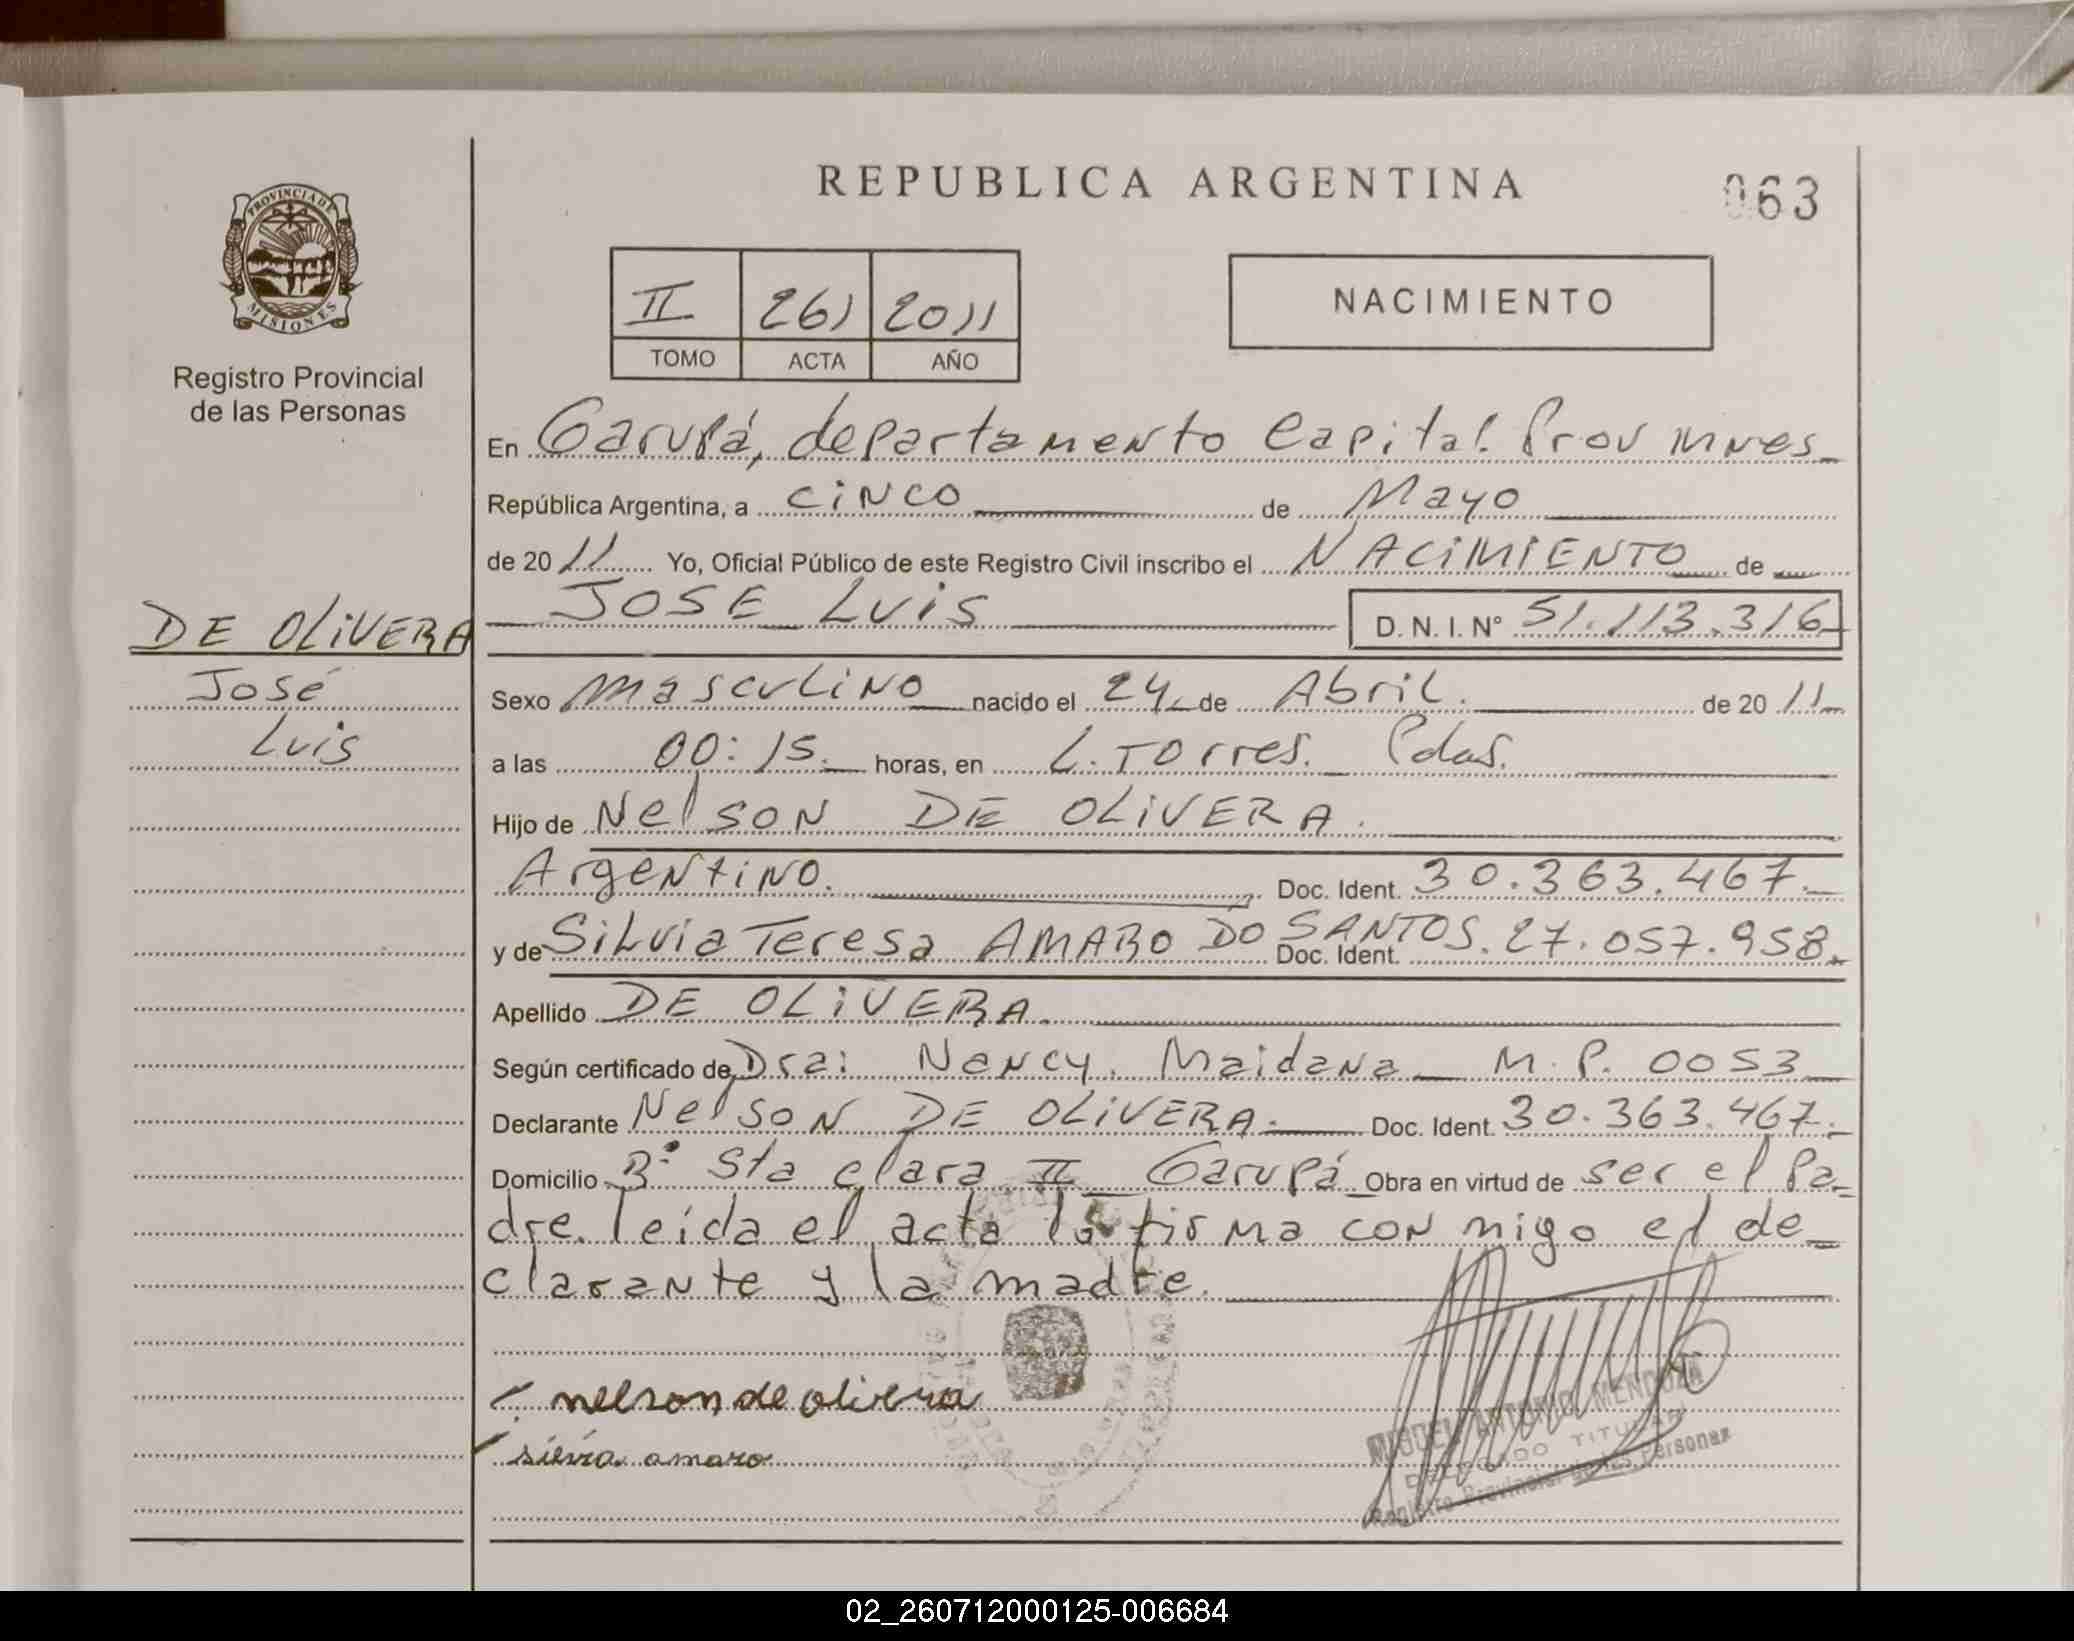 REPUBLICA ARGENTINA
063
PROVINCIA DE
MISIONES
Registro Provincial
de las Personas
II 261 2011
TOMO ACTA AÑO
NACIMIENTO
En Garupá, departamento Capital. Prov Mnes
República Argentina, a cinco de Mayo
de 2011 Yo, Oficial Público de este Registro Civil inscribo el NACIMIENTO de
JOSE LUIS D. N. I. N° 51.113.316
DE OLIVERA
José
Luis
Sexo masculino nacido el 24 de Abril. de 2011
a las 00:15. horas, en L. Torres. Pdas.
Hijo de Nelson DE OLIVERA.
Argentino. Doc. Ident. 30.363.467.
y de Silvia Teresa AMARO DO SANTOS. Doc. Ident. 27.057.958.
Apellido DE OLIVERA.
Según certificado de Dra: Nancy. Maidana M.P. 0053
Declarante Nelson DE OLIVERA. Doc. Ident. 30.363.467.
Domicilio B° Sta clara II Garupá Obra en virtud de ser el Pa-
dre. leida el acta la firma con migo el de-
clarante y la madre.
nelson de olivera
silvia amaro
MIGUEL ANTONIO MENDOZA
DELEGADO TITULAR
Registro Provincial de las Personas
02_260712000125-006684